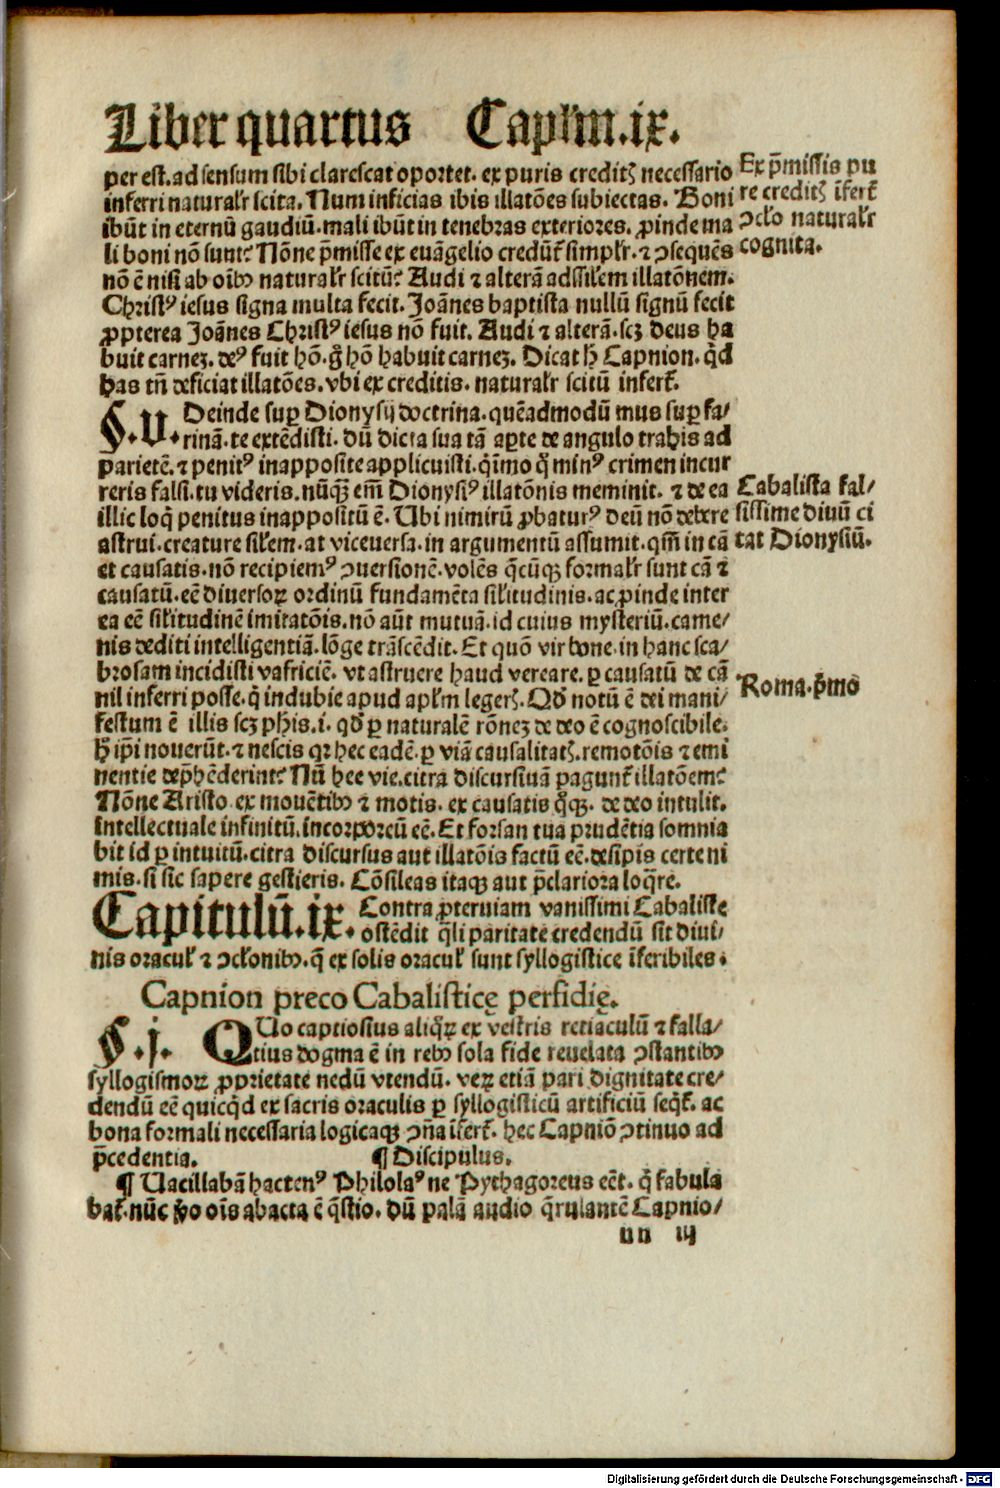 Liber quartus Caplm̄.ix.
per est. ad sensum sibi clarescat oportet. ex puris creditꝭ necessario
inferri naturalr̄ scita. Num inficias ibis illatōes subiectas. Boni
ibūt in eternū gaudiū. mali ibūt in tenebras exteriores. ꝓinde ma
li boni nō sunt? Nōne p̄misse ex euāgelio credūt̄ simplr̄. ⁊ ꝯsequēs
nō ē nisi ab oībꝰ naturalr̄ scitū? Audi ⁊ alterā adsilem illatōnem.
Christꝰ iesus signa multa fecit. Joānes baptista nullū signū fecit
ꝓpterea Joānes Christꝰ iesus nō fuit. Audi ⁊ alterā. scꝫ deus ha
buit carneꝫ. deꝰ fuit hō. gͦ hō habuit carneꝫ. Dicat hͦ Capnion. qͥd
has tn̄ deficiat illatōes. vbi ex creditis. naturalr̄ scitū infert̄.
§.V. Deinde suꝑ Dionysij doctrina. quēadmodū mus suꝑ fa/
rinā. te extēdisti. dū dicta sua tā aꝑte de angulo trahis ad
parietē. ⁊ penitꝰ inapposite applicuisti. qͥmo qͦ minꝰ crimen incur
reris falsi. tu videris. nūqꝫ em̄ Dionysiꝰ illatōnis meminit. ⁊ de ea
illic loqͥ penitus inappositū ē. Ubi nimirū ꝓbaturꝰ deū nō debere
astrui. creature silem. at viceversa. in argumentū assumit. qm̄ in cā
et causatis. nō recipiemꝰ ꝯuersionē. volēs qͥcūqꝫ formalr̄ sunt cā ⁊
causatū. eē diuersoꝝ ordinū fundamēta silitudinis. ac ꝓinde inter
ea eē silitudinē imitatōis. nō aūt mutuā. id cuius mysteriū. came/
nis dediti intelligentiā. lōge trāscēdit. Et quō vir bone. in hanc sca/
brosam incidisti vafriciē. vt astruere haud vereare. ꝑ causatū de cā
nil inferri posse. qͥ indubie apud aplm̄ legerꝭ. Qd̓ notū ē dei mani/
festum ē illis scꝫ ph̄is. i. qd̓ ꝑ naturalē rōneꝫ de deo ē cognoscibile.
hͦ ip̄i nouerūt. ⁊ nescis qꝛ hec eadē. ꝑ viā causalitatꝭ. remotōis ⁊ emi
nentie dep̄hēderint? Nū hee vie. citra discursiuā ꝑagunt̄ illatōem?
Nōne Aristo. ex mouētibꝰ ⁊ motis. ex causatis qͦqꝫ. de deo intulit.
intellectuale infinitū. incorporeū eē. Et forsan tua prudētia somnia
bit id ꝑ intuitū. citra discursus aut illatōis factū eē. desipis certe ni
mis. si sic sapere gestieris. Cōsileas itaqꝫ aut p̄clariora loq̄re.
Capitulū.ix. Contra ꝓteruiam vanissimi Cabaliste
ostēdit qͣli paritate credendū sit diui/
nis oracul̓ ⁊ ꝯclonibꝰ. q̄ ex solis oracul̓ sunt syllogistice īferibiles.
Capnion preco Cabalisticę perfidię.
§.j. QUo captiosius aliqͦꝝ ex vestris retiaculū ⁊ falla/
tius dogma ē in rebꝰ sola fide reuelata ꝯstantibꝰ
syllogismoꝝ ꝓprietate nedū vtendū. veꝝ etiā pari dignitate cre/
dendū eē quicqͥd ex sacris oraculis ꝑ syllogisticū artificiū seqͥt̄. ac
bona formali necessaria logicaqꝫ ꝯn̄a īfert̄. hec Capniō ꝯtinuo ad
p̄cedentia. ¶ Discipulus.
¶ Vacillabā hactenꝰ Philolaꝰ ne Pythagoreus eēt. qͥ fabula
bat̄. nūc ꝟo oīs abacta ē qͣstio. dū palā audio qͣrulantē Capnio/
nn iij
Ex p̄missis pu
re creditꝭ īfert̄
ꝯclo naturalr̄
cognita.
Cabalista fal/
sissime diuū ci
tat Dionysiū.
Roma. pͥmo
Digitalisierung gefördert durch die Deutsche Forschungsgemeinschaft - DFG